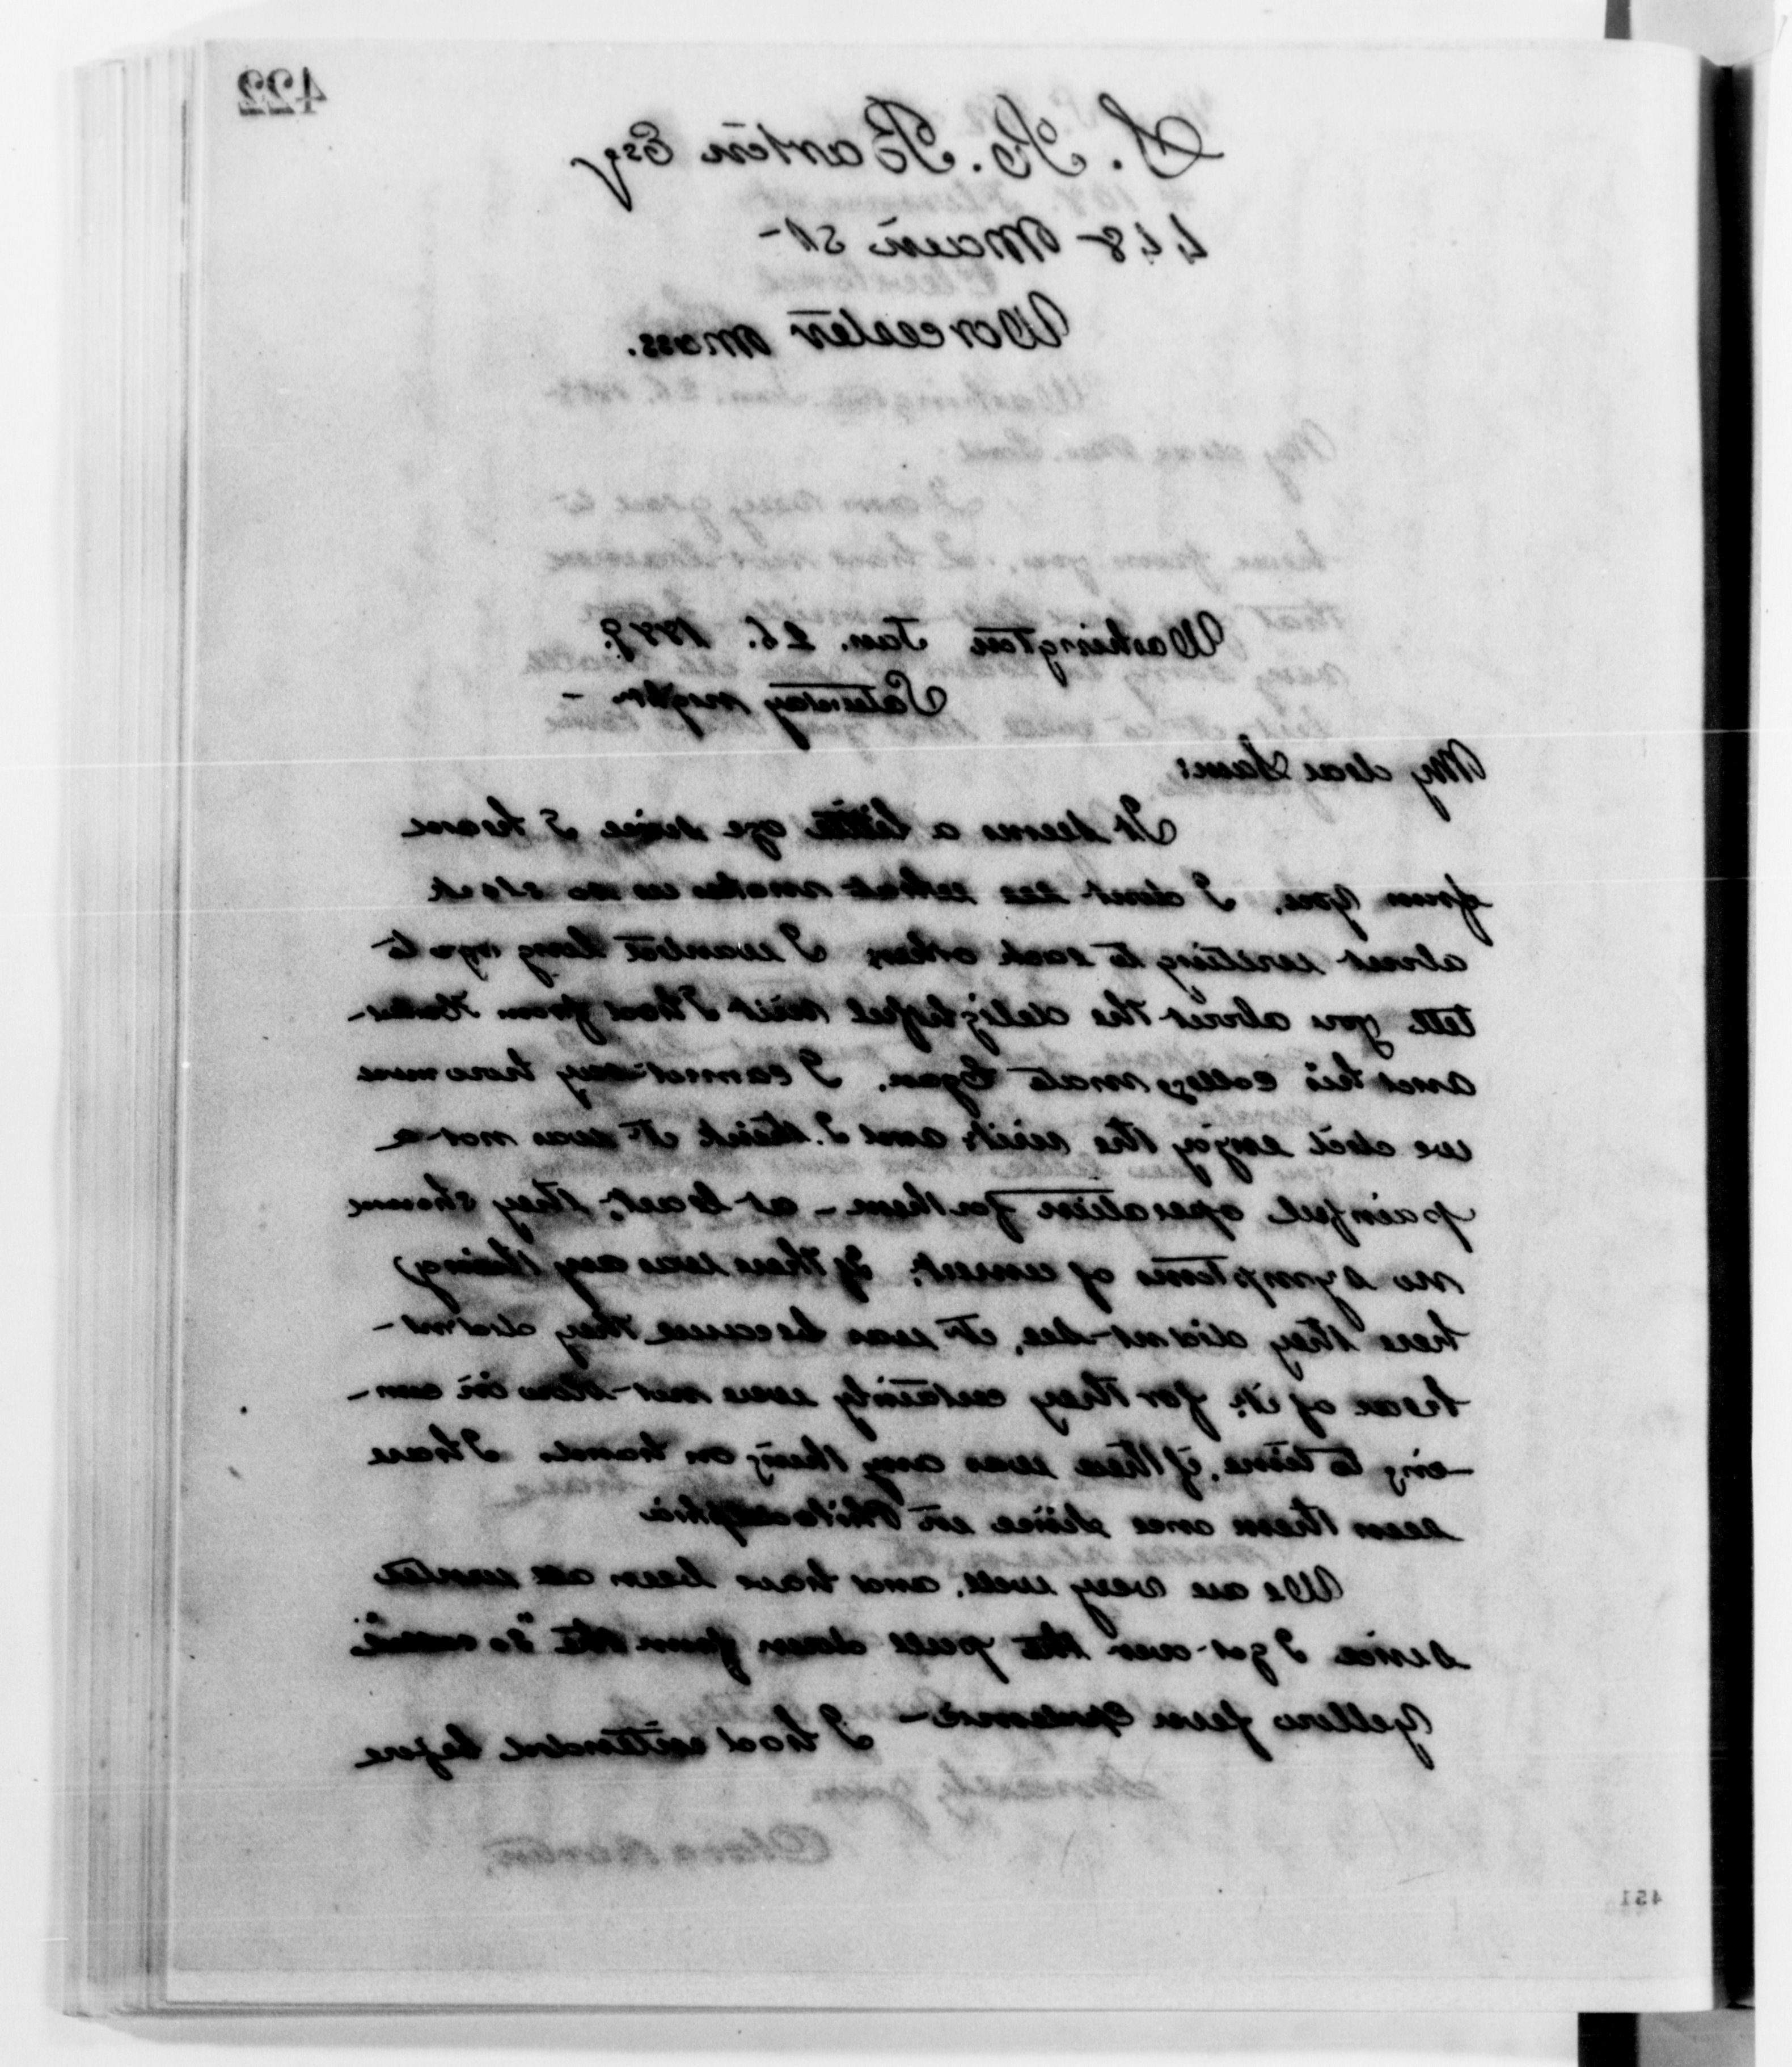 422
S. R. Barton Esq
448 Main St-
Worcester Mass.
Washington Jan. 26. 1889.
Saturday night -
My dear Sam:
It seems a little age since I heard
from you. I dont see what makes us so slack
about writing to each other. I wanted long ago to
tell you about the delightful visit I had from
and his college mate Egan. I cannot say how much
we did enjoy the visit and I think it was not a
painful operation for them - at least, they showed
no symptoms of unrest. If there was any thing
here they did not see, it was because they did not
hear of it, for they certainly were not slow in com-
-ing to time, if there was any thing on hand. I have
seen them once since in Philadelphia
We are very well, and have been all winter
since I got over the pull down from the "so called"
Yellow fever Epidemic - I had intended before
451